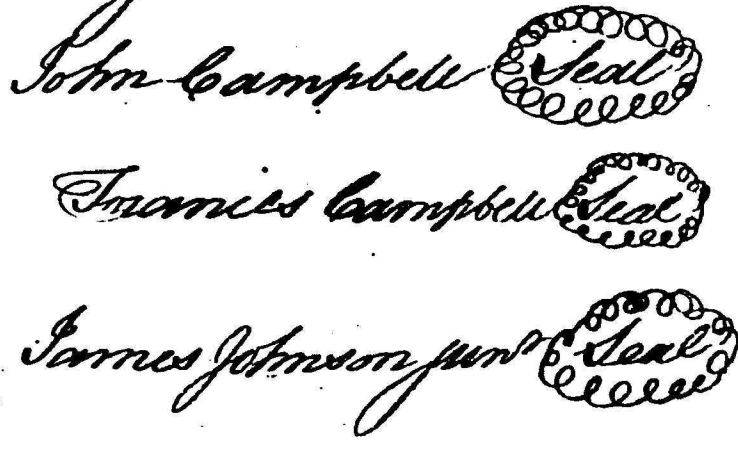 John Campbell Seal
Francis Campbell Seal
James Johnson junr Seal